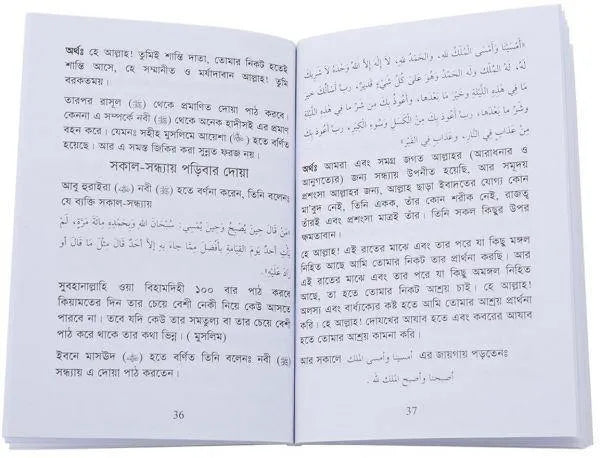 অর্থঃ হে আল্লাহ! তুমিই শান্তি দাতা, তোমার নিকট হতেই
শান্তি আসে, হে সম্মানীত ও মর্যাদাবান আল্লাহ! তুমি
বরকতময়।
তারপর রাসূল (ﷺ) থেকে প্রমাণিত দোয়া পাঠ করবে।
কেননা এ সম্পর্কে নবী (ﷺ) থেকে অনেক হাদীসই এর প্রমাণ
বহন করে। যেমনঃ সহীহ মুসলিমে আয়েশা হতে বর্ণিত
হয়েছে। আর এ সমস্ত জিকির করা সুন্নত ফরজ নয়।
সকাল-সন্ধ্যায় পড়িবার দোয়া
আবু হুরাইরা নবী (ﷺ) হতে বর্ণনা করেন, তিনি বলেনঃ
যে ব্যক্তি সকাল-সন্ধ্যায়
«مَنْ قَالَ حِينَ يُصْبِحُ وَحِينَ يُمْسِي: سُبْحَانَ اللهِ وَبِحَمْدِهِ مِائَةَ مَرَّةٍ، لَمْ
يَأْتِ أَحَدٌ يَوْمَ الْقِيَامَةِ بِأَفْضَلَ مِمَّا جَاءَ بِهِ إِلاَّ أَحَدٌ قَالَ مِثْلَ مَا قَالَ أَوْ
زَادَ عَلَيْهِ»
সুবহানাল্লাহি ওয়া বিহামদিহী ১০০ বার পাঠ করবে
কিয়ামতের দিন তার চেয়ে বেশী নেকী নিয়ে কেউ আসতে
পারবে না। তবে যদি কেউ তার সমতুল্য বা তার চেয়ে বেশী
পাঠ করে থাকে তার কথা ভিন্ন। ( মুসলিম)
ইবনে মাসঊদ হতে বর্ণিত তিনি বলেনঃ নবী (ﷺ)
সন্ধ্যায় এ দোয়া পাঠ করতেন।
36
«أَمْسَيْنَا وَأَمْسَى الْمُلْكُ للهِ، وَالْحَمْدُ للهِ، لاَ إِلَهَ إِلاَّ اللهُ وَحْدَهُ لاَ شَرِيكَ
لَهُ، لَهُ الْمُلْكُ وَلَهُ الْحَمْدُ وَهُوَ عَلَى كُلِّ شَيْءٍ قَدِيرٌ، رَبِّ أَسْأَلُكَ خَيْرَ
مَا فِي هَذِهِ اللَّيْلَةِ وَخَيْرَ مَا بَعْدَهَا، وَأَعُوذُ بِكَ مِنْ شَرِّ مَا فِي هَذِهِ اللَّيْلَةِ
وَشَرِّ مَا بَعْدَهَا، رَبِّ أَعُوذُ بِكَ مِنَ الْكَسَلِ وَسُوءِ الْكِبَرِ، رَبِّ أَعُوذُ بِكَ
مِنْ عَذَابٍ فِي النَّارِ، وَعَذَابٍ فِي الْقَبْرِ»
অর্থঃ আমরা এবং সমগ্র জগত আল্লাহর (আরাধনার ও
আনুগত্যের) জন্য সন্ধ্যায় উপনীত হয়েছি, আর সমূদয়
প্রশংসা আল্লাহর জন্য, আল্লাহ ছাড়া ইবাদতের যোগ্য কোন
মা'বুদ নেই, তিনি একক, তাঁর কোন শরীক নেই, রাজত্ব
তাঁরই এবং প্রশংসা মাত্রই তাঁর। তিনি সকল কিছুর উপর
ক্ষমতাবান।
হে আল্লাহ! এই রাতের মাঝে এবং তার পরে যা কিছু মঙ্গল
নিহিত আছে আমি তোমার নিকট তার প্রার্থনা করছি। আর
এই রাতের মাঝে এবং তার পরে যা কিছু অমঙ্গল নিহিত
আছে, তা হতে তোমার নিকট আশ্রয় চাই। হে আল্লাহ!
অলস্য এবং বার্ধক্যের কষ্ট হতে আমি তোমার আশ্রয় প্রার্থনা
করি। হে আল্লাহ! দোযখের আযাব হতে এবং কবরের আযাব
হতে তোমার আশ্রয় কামনা করি।
আর সকালে أمسينا وأمسى الملك এর জায়গায় পড়তেনঃ
أصبحنا وأصبح الملك لله .
37